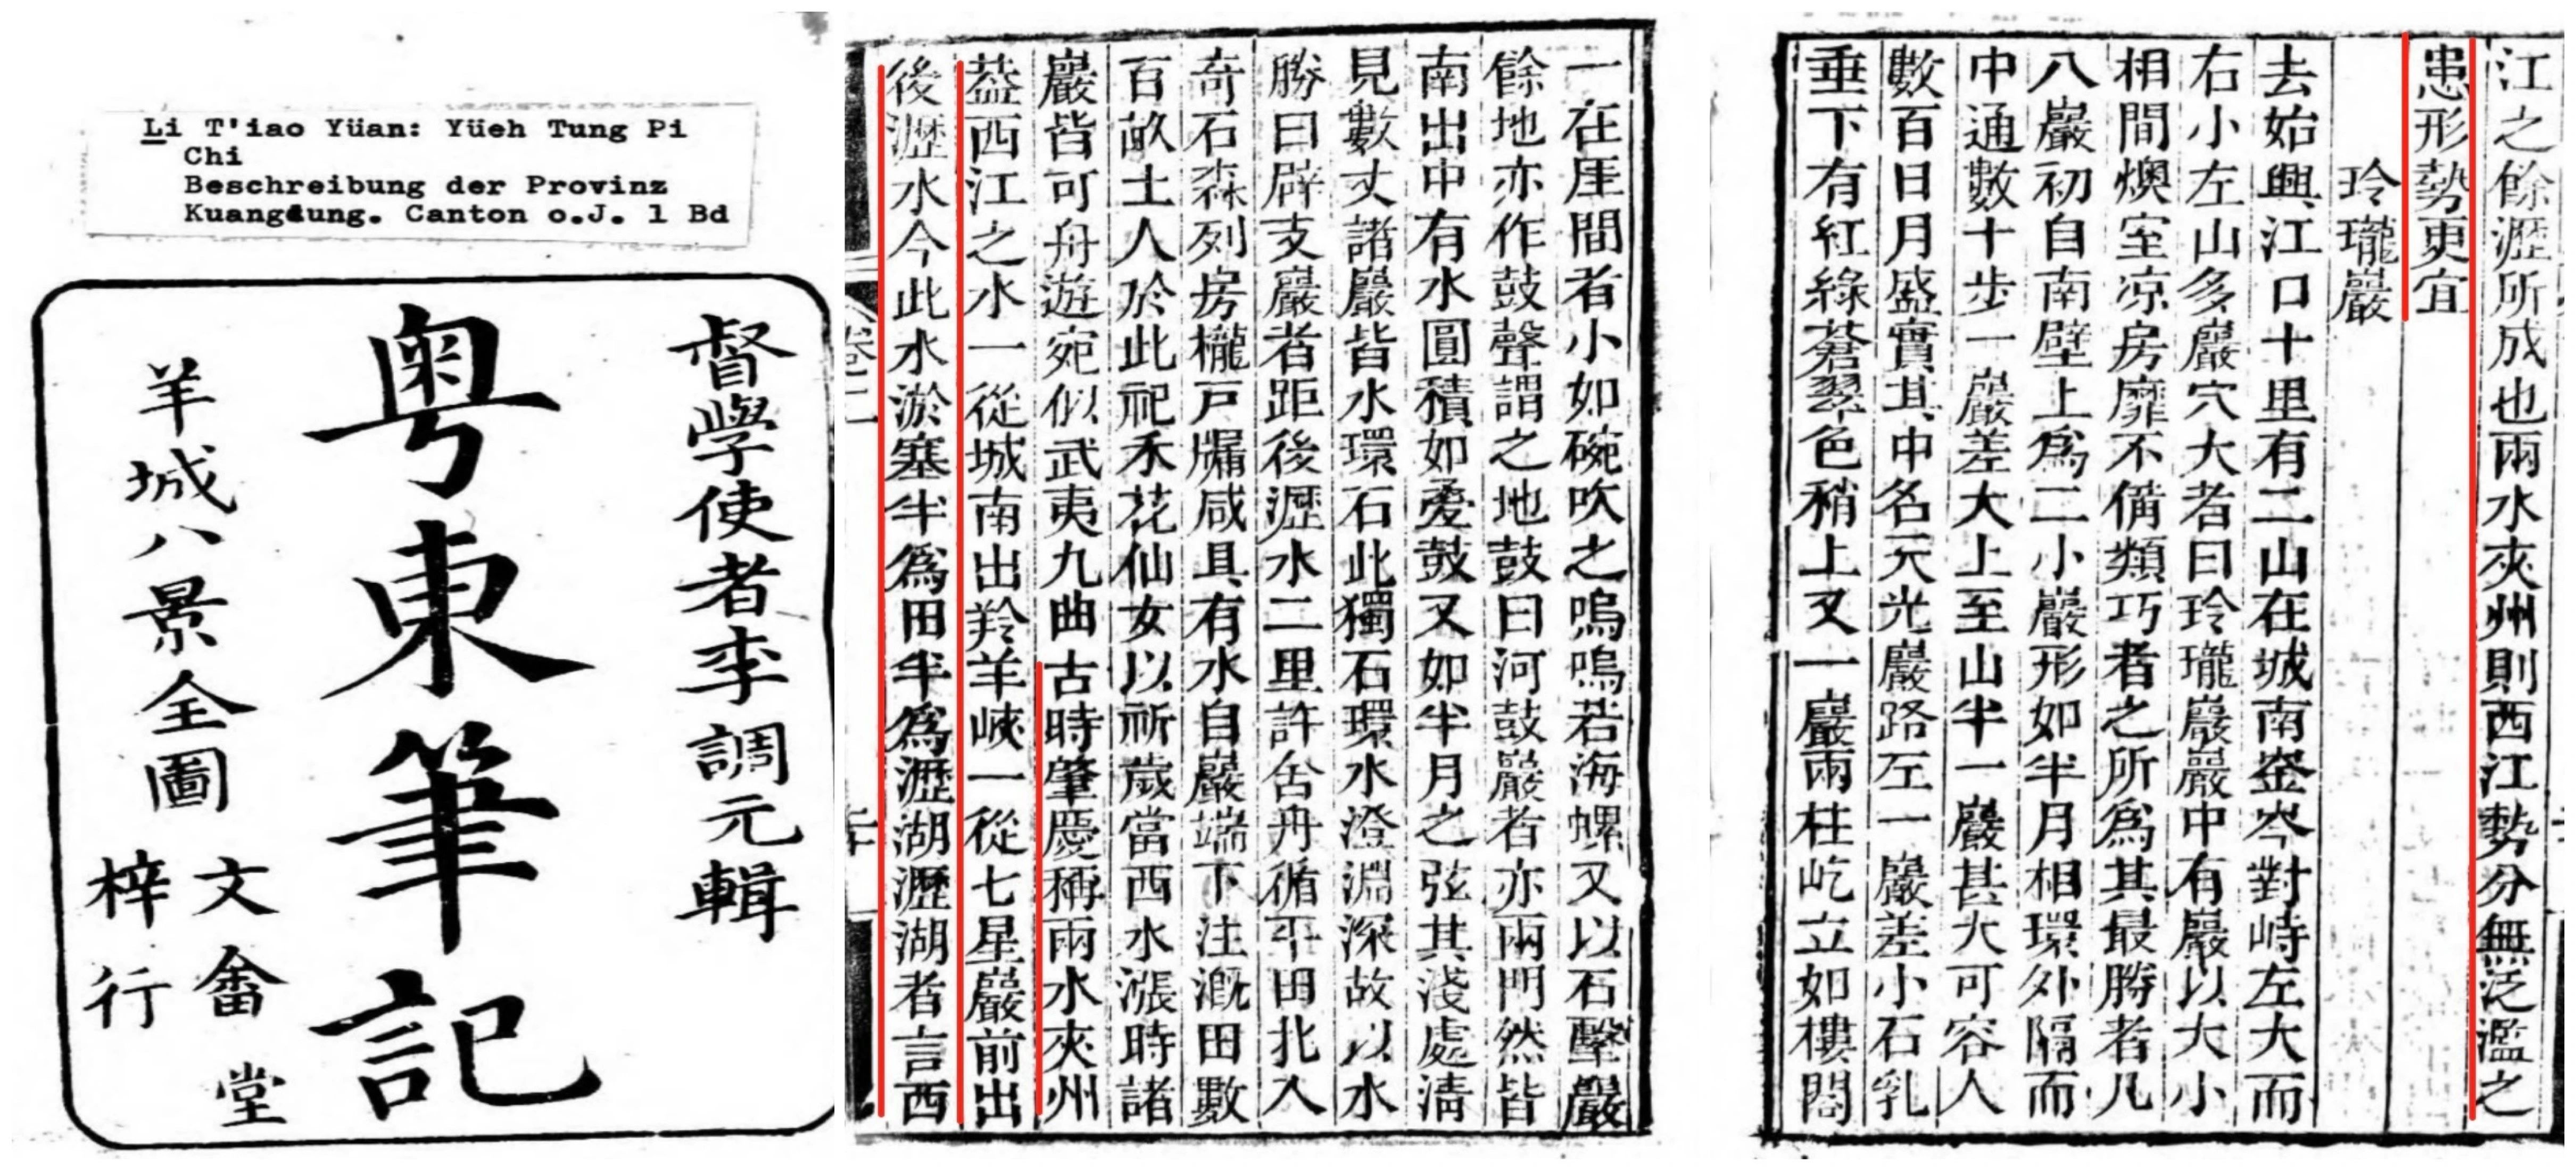 Li T'iao Yüan: Yüeh Tung Pi
Chi
Beschreibung der Provinz
Kuangtung. Canton o.J. 1 Bd
督學使者李調元輯
粵東筆記
羊城八景全圖
文畬堂
梓行
一在厓間者小如碗吹之嗚嗚若海螺又以石擊巖
餘地亦作鼓聲謂之地鼓曰河鼓巖者亦兩門然皆
南出中有水圓積如憂鼓又如半月之弦其淺處清
見數丈諸巖皆水環石此獨石環水澄淵深故以水
勝曰辟支巖者距後瀝水二里許舍舟循平田北入
奇石森列房櫳戸牖咸具有水自巖端下注漑田數
百畝土人於此祀禾花仙女以祈歲當西水漲時諸
巖皆可舟遊宛似武夷九曲古時肇慶稱兩水夾州
葢西江之水一從城南出羚羊峽一從七星巖前出
後瀝水今此水淤塞半為田半為瀝湖瀝湖者言西
卷二
江之餘瀝所成也兩水夾州則西江勢分無泛濫之
患形勢更宜
玲瓏巖
去始興江口十里有二山在城南崟岑對峙左大而
右小左山多巖穴大者曰玲瓏巖巖中有巖以大小
相間燠室凉房靡不備類巧者之所為其最勝者凡
八巖初自南壁上為二小巖形如半月相環外隔而
中通數十步一巖差大上至山半一巖甚大可容人
數百日月盛實其中名元光巖路左一巖差小石乳
垂下有紅綠蒼翠色稍上又一巖兩柱屹立如樓閣